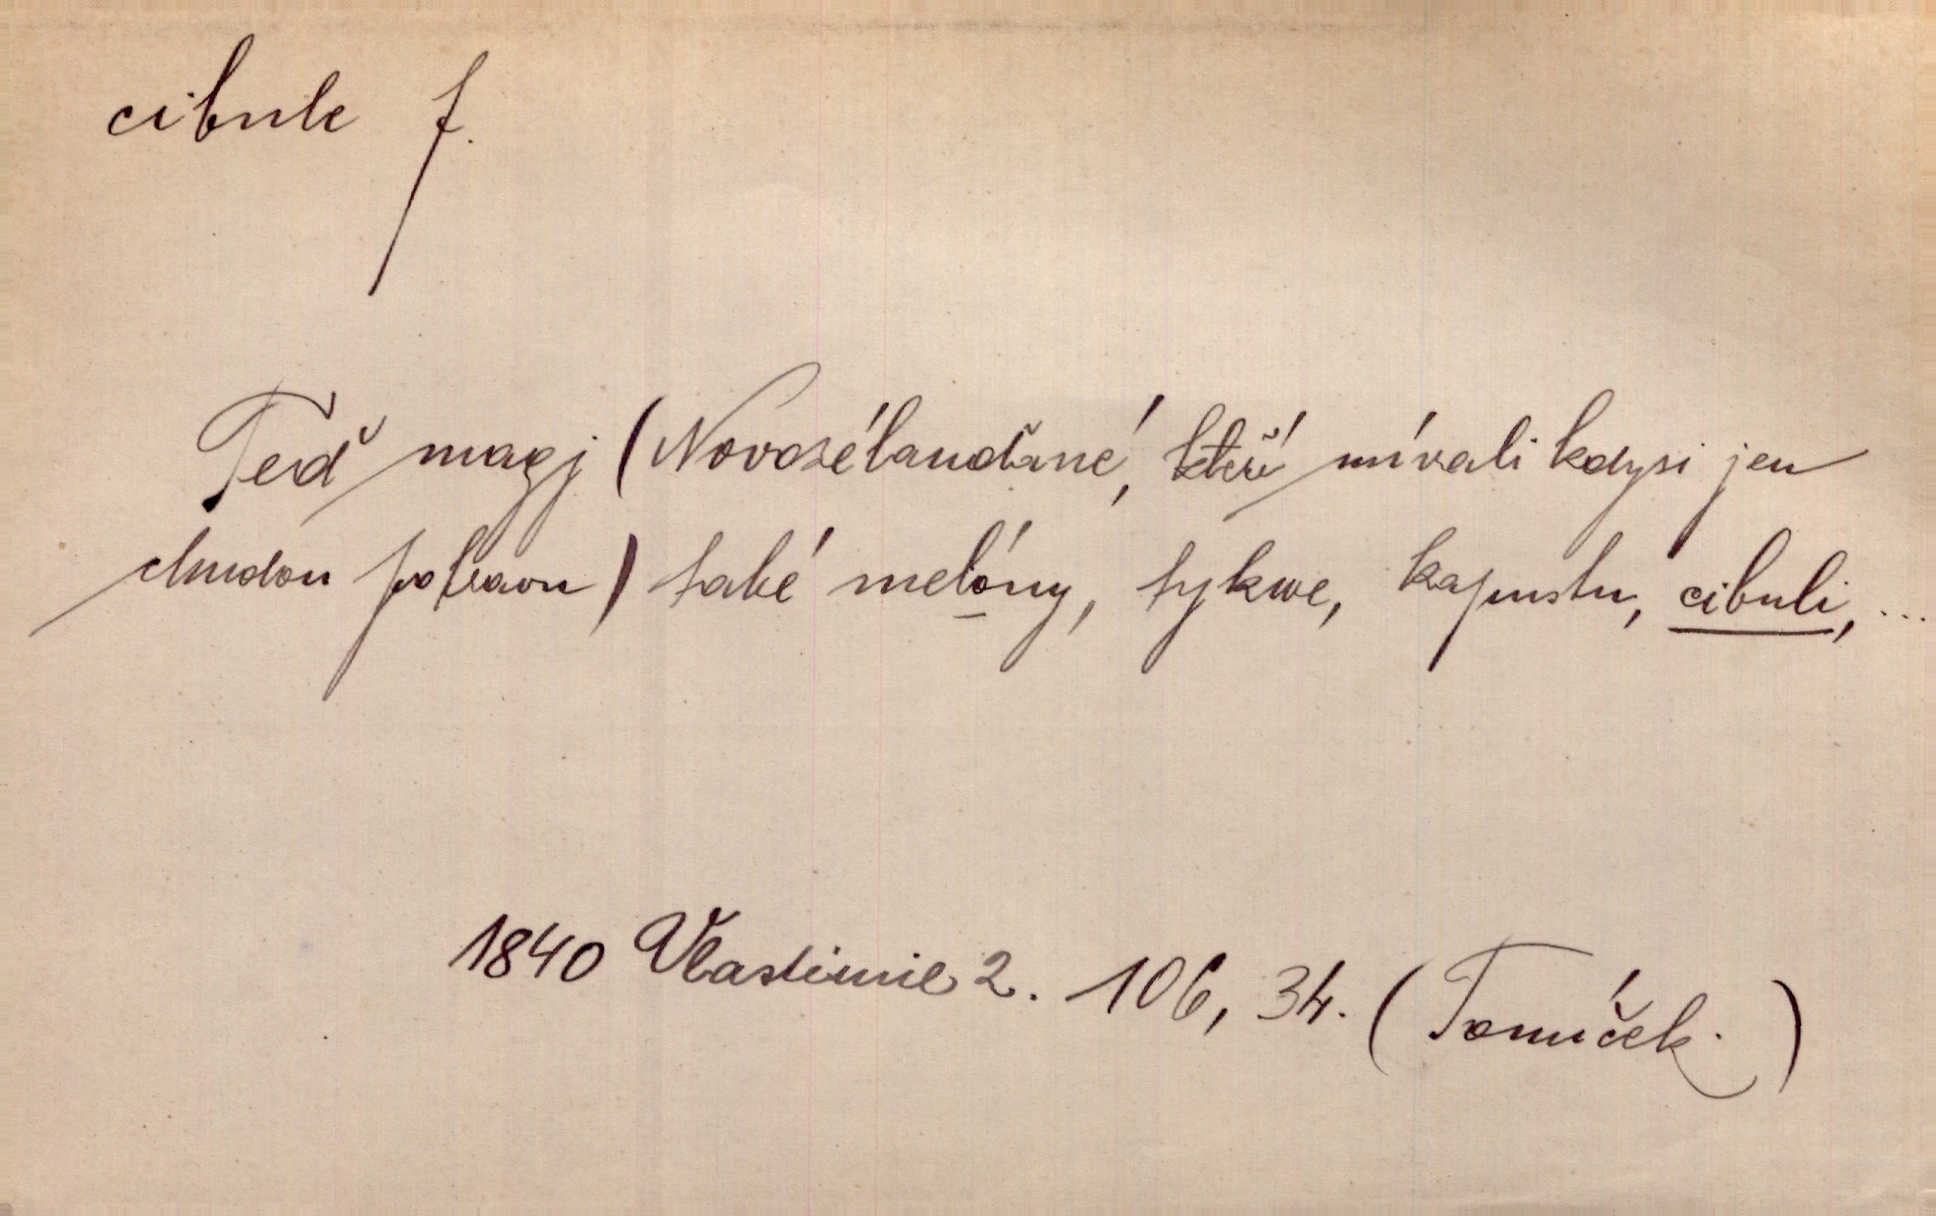 cibule f.
Teď magj (Novosélanďané, kteří mívali kdysi jen
chudou potravu) také melóny, tykwe, kapustu, cibuli, ...
1840 Vlastimil 2. 106, 34. (Tomíček.)